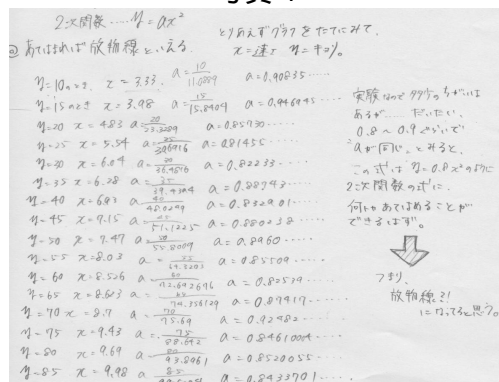 2次関数……y=ax²
@ あてはまれば 放物線といえる。
とりあえずグラフをたてにみて、
x=速さ y=キョリ。
y=10のとき x=3.33. a=10/11.0889 a=0.90835……
y=15のとき x=3.98 a=15/15.8404 a=0.946945……
y=20 x=4.83 a=20/23.3289 a=0.85730……
y=25 x=5.54 a=25/30.6916 a=0.81455……
y=30 x=6.04 a=30/36.4816 a=0.82233……
y=35 x=6.28 a=35/39.4384 a=0.88743……
y=40 x=6.93 a=40/48.0249 a=0.832901……
y=45 x=7.15 a=45/51.1225 a=0.880238……
y=50 x=7.47 a=50/55.8009 a=0.8960……
y=55 x=8.03 a=55/64.3203 a=0.85509……
y=60 x=8.526 a=60/72.692676 a=0.82539……
y=65 x=8.623 a=65/74.356129 a=0.87417……
y=70 x=8.7 a=70/75.69 a=0.92482……
y=75 x=9.43 a=75/88.642 a=0.8461004……
y=80 x=9.69 a=80/93.8961 a=0.8520055……
y=85 x=9.98 a=85/ a=0.8433701……
実験なので 多少のちがいは
あるが…… だいたい、
0.8〜0.9ぐらいで
aが同じ。とみると、
この式は y=0.8x²のように
2次関数の式に、
何とかあてはめることが
できるはず。
つまり、
放物線?!
になってると思う。